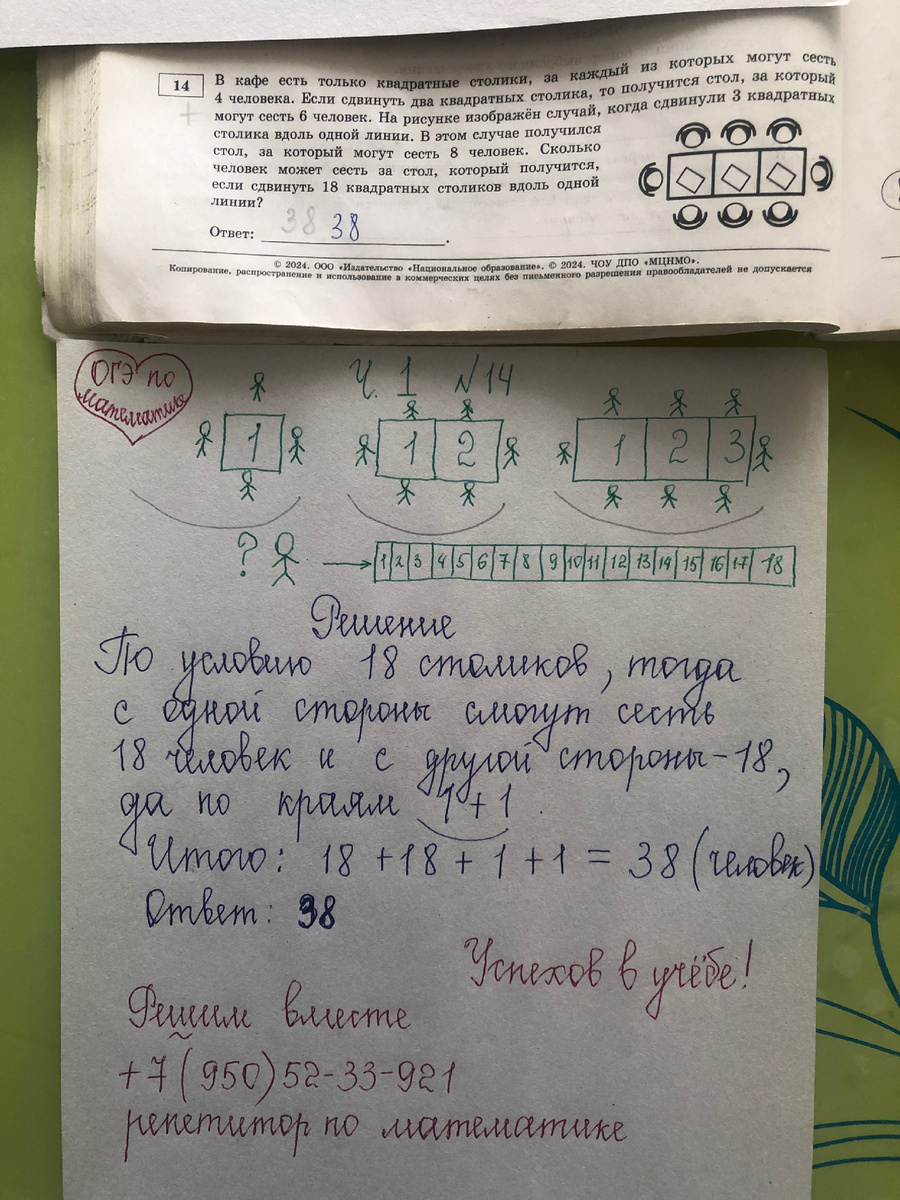 14
В кафе есть только квадратные столики, за каждый из которых могут сесть
4 человека. Если сдвинуть два квадратных столика, то получится стол, за который
могут сесть 6 человек. На рисунке изображён случай, когда сдвинули 3 квадратных
столика вдоль одной линии. В этом случае получился
стол, за который могут сесть 8 человек. Сколько
человек может сесть за стол, который получится,
если сдвинуть 18 квадратных столиков вдоль одной
линии?
Ответ: 38 38.
© 2024. ООО «Издательство «Национальное образование». © 2024. ЧОУ ДПО «МЦНМО».
Копирование, распространение и использование в коммерческих целях без письменного разрешения правообладателей не допускается
ОГЭ по
математике
Ч. 1 №14
1 1 2 1 2 3
? 1 2 3 4 5 6 7 8 9 10 11 12 13 14 15 16 17 18
Решение
По условию 18 столиков, тогда
с одной стороны смогут сесть
18 человек и с другой стороны - 18,
да по краям 1 + 1
Итого: 18 + 18 + 1 + 1 = 38 (человек)
Ответ: 38
Успехов в учёбе!
Решим вместе
+7(950)52-33-921
репетитор по математике